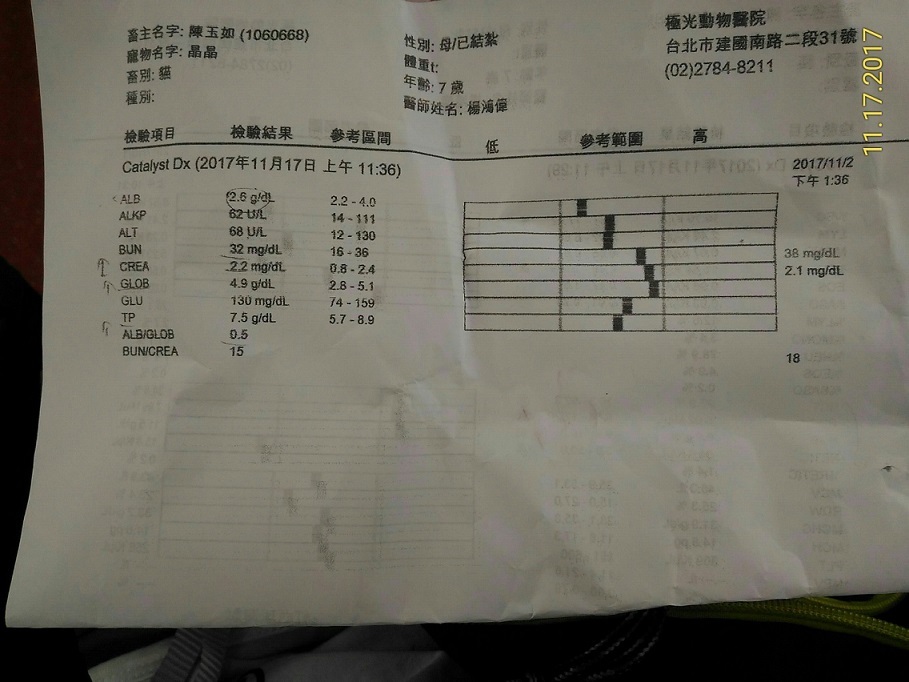 畜主名字: 陳玉如 (1060668)
寵物名字: 晶晶
畜別: 貓
種別:
性別: 母/已結紮
體重:
年齡: 7 歲
醫師姓名: 楊鴻偉
極光動物醫院
台北市建國南路二段31號
(02)2784-8211
11.17.2017
檢驗項目 檢驗結果 參考區間 低 參考範圍 高
Catalyst Dx (2017年11月17日 上午 11:36) 2017/11/2
下午 1:36
ALB 2.6 g/dL 2.2 - 4.0
ALKP 62 U/L 14 - 111
ALT 68 U/L 12 - 130
BUN 32 mg/dL 16 - 36 38 mg/dL
CREA 2.2 mg/dL 0.8 - 2.4 2.1 mg/dL
GLOB 4.9 g/dL 2.8 - 5.1
GLU 130 mg/dL 74 - 159
TP 7.5 g/dL 5.7 - 8.9
ALB/GLOB 0.5
BUN/CREA 15 18